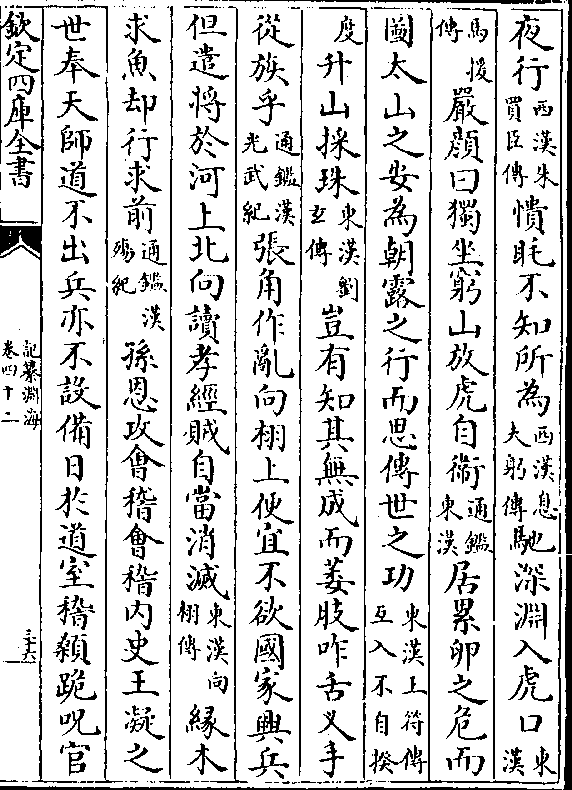 夜行西漢朱買臣傳憒眊不知所為西漢息夫躬傳馳深淵入虎口東漢
馬援傳嚴顔曰獨坐窮山放虎自衛通鑑東漢居累卵之危而
圖太山之安為朝露之行而思傳世之功東漢上符傳互入不自揆
度升山採珠東漢劉玄傳豈有知其無成而萎肢咋舌义手
從族乎通鑑漢光武紀張角作亂向栩上便宜不欲國家興兵
但遣將於河上北向讀孝經賊自當消滅東漢向栩傳緣木
求魚却行求前通鑑漢殤紀孫恩攻會稽會稽内史王凝之
世奉天師道不出兵亦不設備日於道室稽顙跪呪官
欽定四庫全書
記纂淵海
卷四十二
三十六